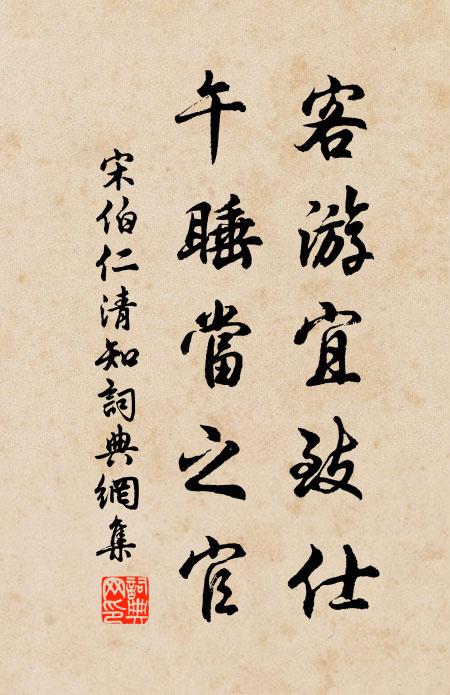 客游宜致仕
午睡當之官
宋伯仁清知詞典網集